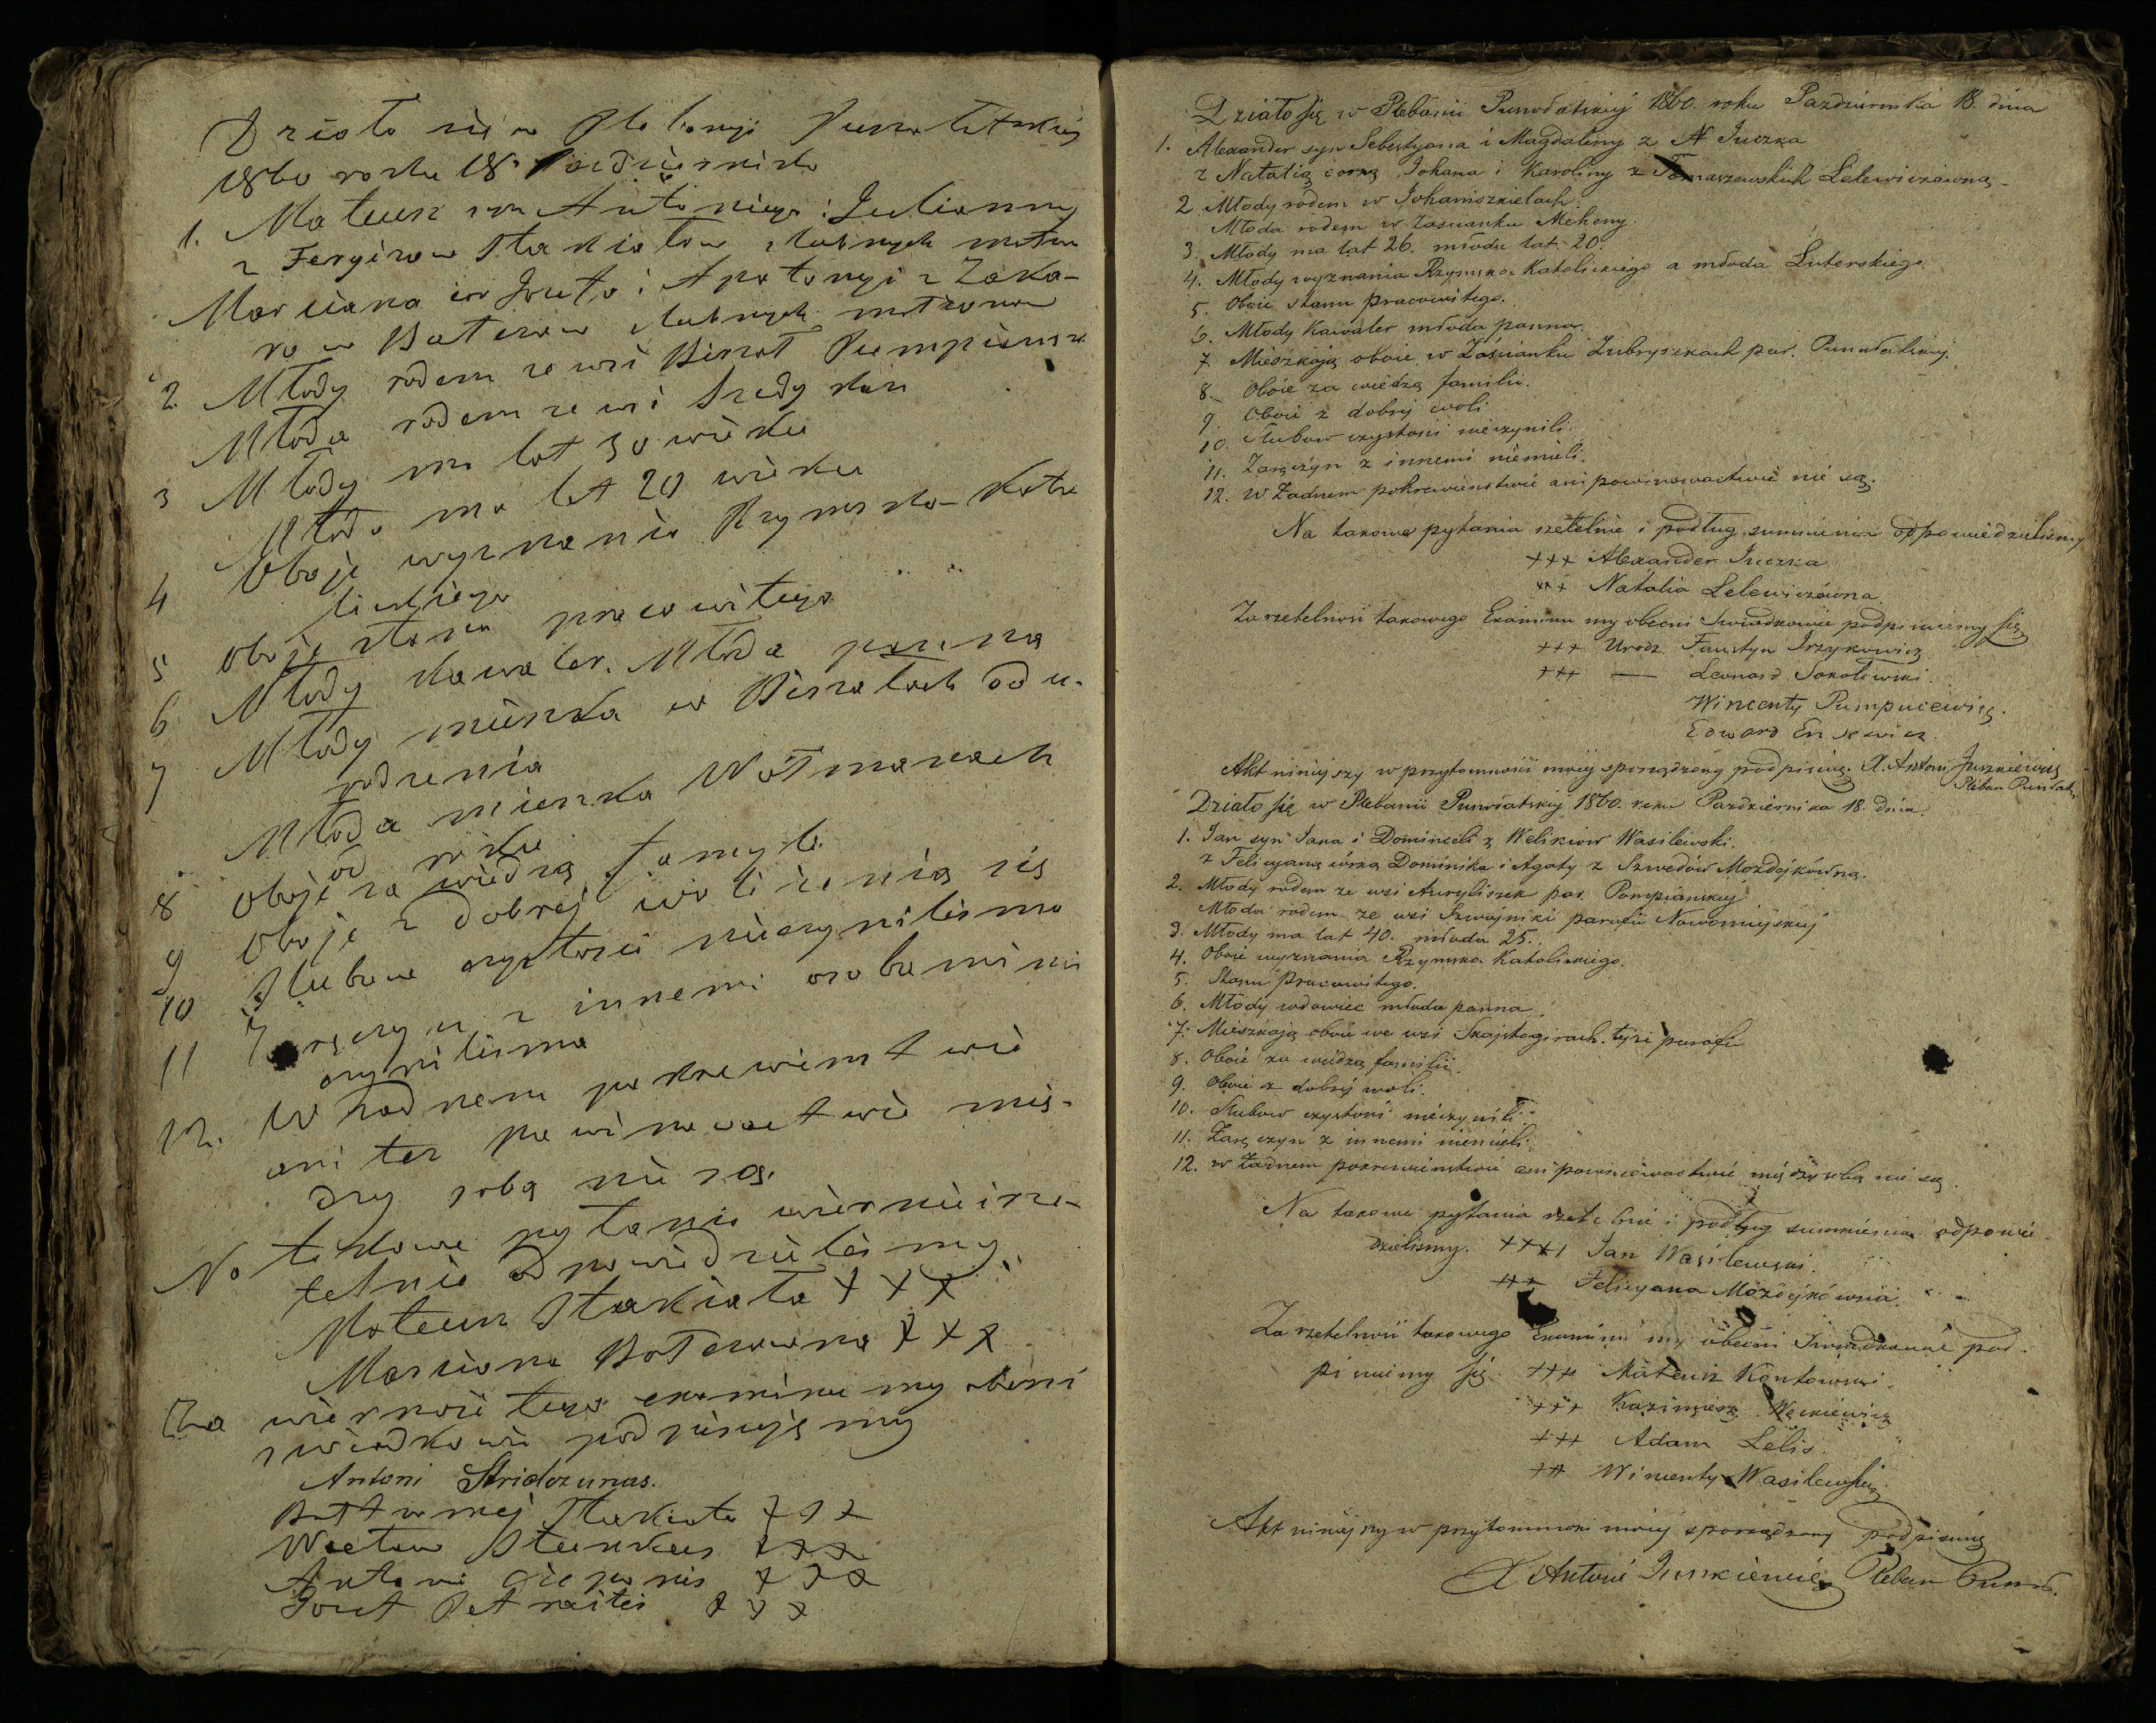 Działo się w Plebanyi
1860 roku 18 Października
1. Mateusz syn Antoniego i Julianny
z Stakiatow slubnych
Marciana Jozefa i Apolonyi z Zaka-
row slubnych
2. Młody rodem ze wsi
Młoda rodem ze wsi
3 Młody ma lat 30 wieku
Młoda ma let 20 wieku
4 Oboje wyznania Rzymsko-Kato
lickiego
5 Oboje stanu pracowitego
6 Młody Kawaler. Młoda panna
7 Młody mieszka w od u-
rodzenia
Młoda mieszka
od roku
8 Oboje za wiedzą familii
9 Oboje z dobrej woli żenią się
10 Slubow czystosci nieczynilismo
11 Zaręczyn z innemi osobami ni
czynilismo
12. W żadnem pokrewinstwie
ani tez powinowactwie mię-
dzy sobą nie są.
Na takowe pytania wiernie i rze-
telnie odpowiedzielismy
Mateusz Stakiata + + +
Marciana + + +
Za wiernosc tego examinu my obecni
swiadkowie podpisujęmy
Antoni Stridozunas.
Stakiata + + +
+ + +
Antoni + + +
Jozef Petraitis + + +
Działo się w Plebanii Punwdatskiéj 1860. roku Października 18. dnia
1. Alexander syn Sebestyana i Magdaleny z N Iuczka
z Natalią corką Johana i Karoliny z Tomaszewskich Lelewiczówną.
2. Młody rodem w Johaniszkielach.
Młoda rodem w Zascianku Mekeny.
3. Młody ma lat 26. młoda lat 20.
4. Młody wyznania Rzymsko-Katolickiego a młoda Luterskiego
5. Oboie stanu pracowitego.
6. Młody Kawaler młoda panna.
7. Mieszkają oboie w Zaścianku Zubryszkach par.
8. Oboie za wiedzą familii.
9. Oboie z dobréj woli
10. Slubow czystosci nieczynili.
11. Zaręczyn z innemi niemieli.
12. W żadnem pokrewienstwie ani powinowactwie nie są.
Na takowe pytania rzetelnie i podług sumnienia odpowiedzielismy
+++ Alexander Iuczka
+++ Natalia Lelewiczówna
Za rzetelność takowego Examinu my obecni Swiadkowie podpisuiemy się
+++ Urodz. Faustyn Irzykowicz
+++ — Leonard Sokołowski.
Wincenty Pumpucewicz.
Edward
Akt niniejszy w przytomności moiéj sporządzony podpisuię. X. Antoni Juszkiewicz
Pleban
Działo się w Plebanii 1860. roku Października 18. dnia.
1. Jan syn Jana i Domineceli z Welikiow Wasilewski.
z Felicyaną córką Dominika i Agaty z Szwedów Możdejkówną.
2. Młody rodem ze wsi par. Pompianskiej
Młoda rodem ze wsi Szwoyniki parafii Nowomiejskiéj
3. Młody ma lat 40. młoda 25.
4. Oboie wyznania Rzymsko Katolickiego.
5. Stanu Pracowitego.
6. Młody wdowiec młoda panna
7. Mieszkają oboie we wsi Skajstogirach. téjże parafii
8. Oboie za wiedzą familii.
9. Oboie z dobréj woli.
10. Slubow czystosci nieczynili.
11. Zaręczyn z innemi niemieli.
12. w Żadnem pokrewienstwie ani powinowactwie między sobą nie są.
Na takowe pytania rzetelnie i podług sumnienia odpowie-
dzielismy. ++++ Jan Wasilewski.
+++ Felicyana Możdejkówna.
Za rzetelność takowego Examinu my obecni Swiadkowie pod-
pisuimy się +++ Mateusz Kontowski.
+++ Kazimierz
+++ Adam Lelis.
+++ Wincenty Wasilewski
Akt niniejszy w przytomności moiéj sporządzony podpisuię
X Antoni Juszkiewicz Pleban